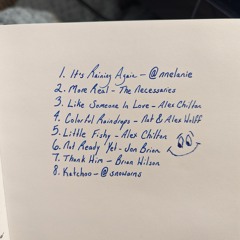 1. It's Raining Again - @nnelanie
2. More Real - The Necessaries
3. Like Someone In Love - Alex Chilton
4. Colorful Raindrops - Nat & Alex Wolff
5. Little Fishy - Alex Chilton
6. Not Ready Yet - Jon Brion
7. Thank Him - Brian Wilson
8. Katchoo - @snowairs